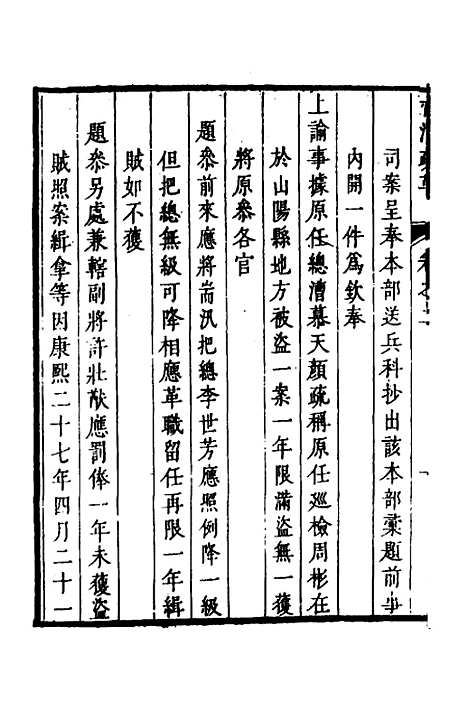 司案呈奉本部送兵科抄出該本部彙題前事
內開一件爲欽奉
上諭事據原任總漕慕天顏疏稱原任巡檢周彬在
於山陽縣地方被盜一案一年限滿盜無一獲
將原叅各官
題叅前來應將耑汛把總李世芳應照例降一級
但把總無級可降相應革職留任再限一年緝
賊如不獲
題叅另處兼轄副將許壯猷應罰俸一年未獲盜
賊照案緝拿等因康熙二十七年四月二十一